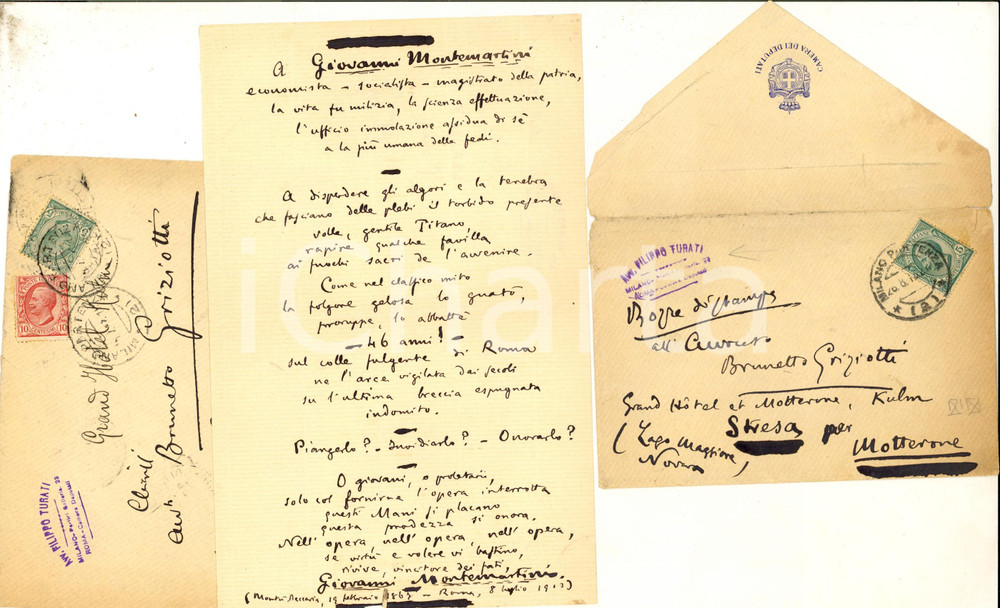 A Giovanni Montemartini
economista - socialista - magistrato della patria,
la vita fu milizia, la scienza effettuazione,
l'ufficio immolazione assidua di sè
a la più umana delle fedi.
A disperdere gli algori e la tenebra
che fasciano delle plebi il torbido presente
volle, gentile Titano,
rapire qualche favilla
ai fuochi sacri de l'avvenire.
Come nel classico mito
la folgore gelosa lo guatò,
proruppe, lo abbattè
- 46 anni! -
sul colle fulgente di Roma
ne l'arce vigilata dai secoli
su l'ultima breccia espugnata
indomito.
Piangerlo? - Invidiarlo? - Onorarlo?
O giovani, o proletarii,
solo col fornirne l'opera interrotta
questi Mani si placano
questa prodezza si onora.
Nell'opera nell'opera, nell'opera,
se virtù e volere vi bastino,
rivive, vincitore dei fati,
Giovanni Montemartini.
(Montù Beccaria, 19 febbraio 1867 - Roma, 8 luglio 1913)
Grand Hôtel
Chiar.
Avv. Brunetto Griziotti
AVV. FILIPPO TURATI
MILANO - Portici Galleria, 23
ROMA - Camera Deputati
10
CAMERA DEI DEPUTATI
AVV. FILIPPO TURATI
MILANO
ROMA - Camera Deputati
MILANO PARTENZA
(21)
5
Bozze di stampa
all'Avvocato
Brunetto Griziotti
Grand Hôtel et Motterone, Kulm
(Lago Maggiore, Stresa per
Novara Motterone